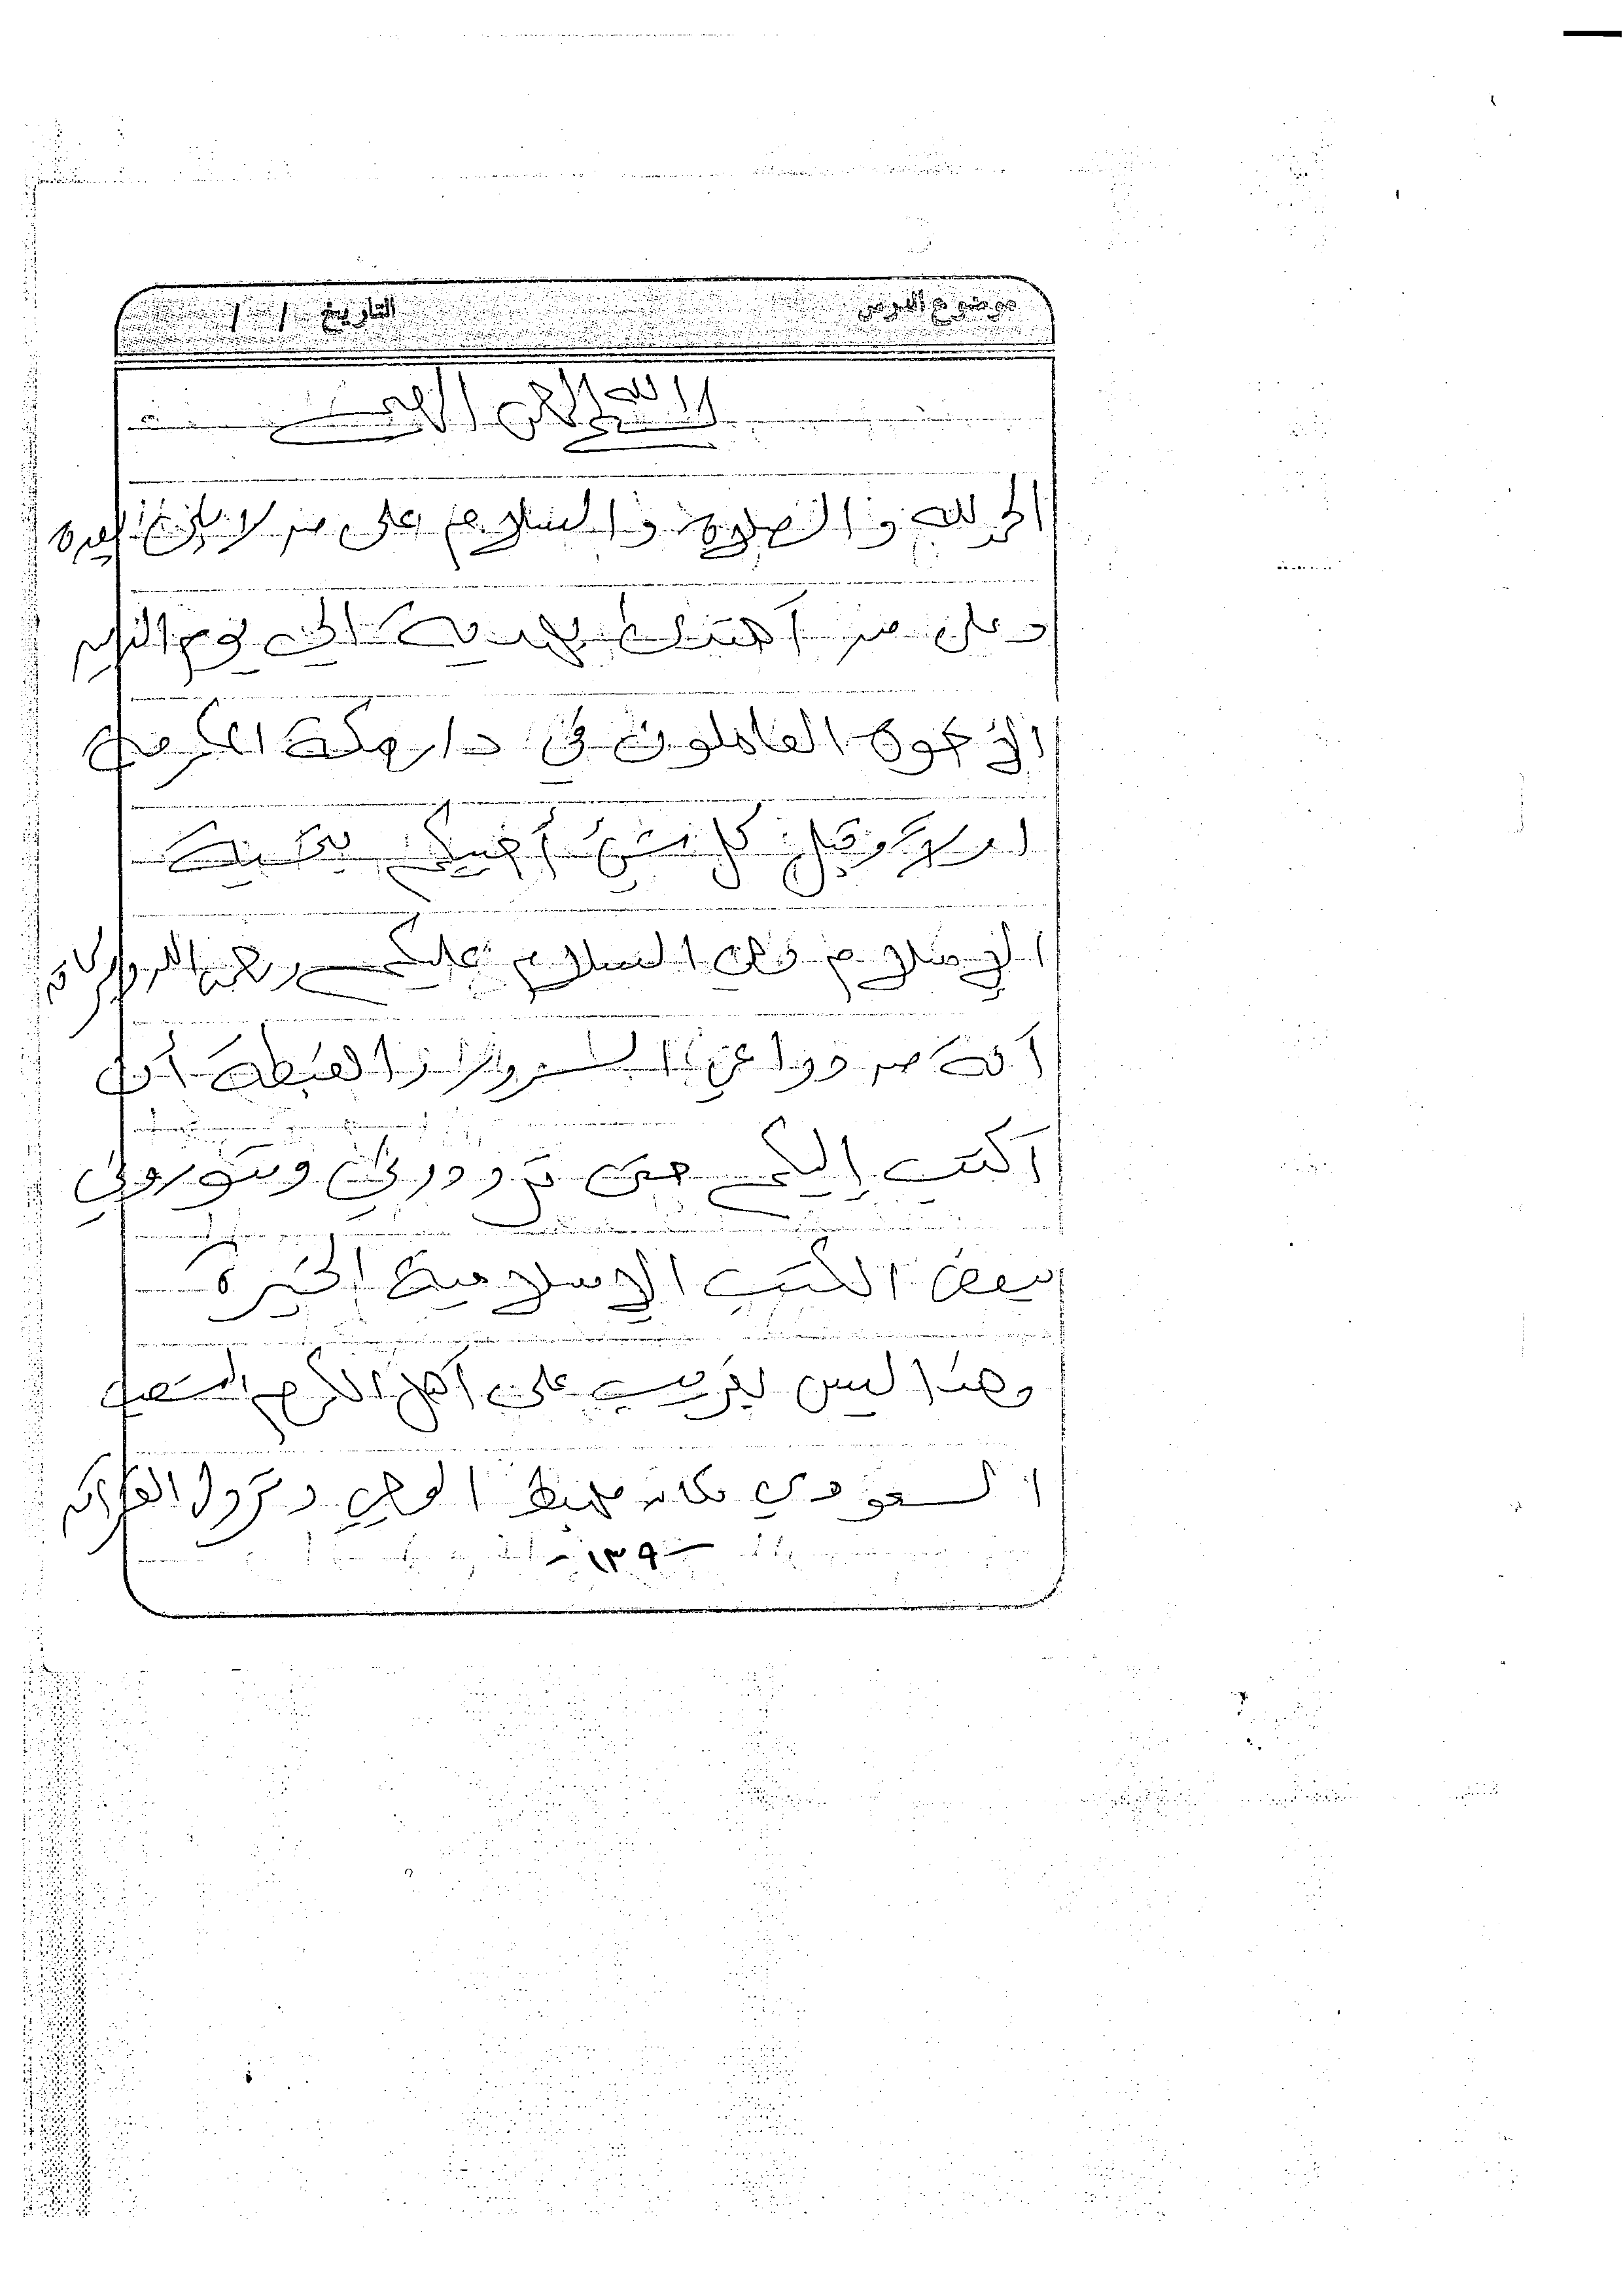 موضوع الدرس التاريخ / /
بسم الله الرحمن الرحيم
الحمد لله والصلاة والسلام على من لا نبي بعده
وعلى من اهتدى بهديه الى يوم الدين
الإخوة العاملون في دار مكة المكرمة
اولا وقبل كل شيء أحييكم بتحية
الإسلام وهي السلام عليكم ورحمة الله وبركاته
انه من دواعي السرور والغبطة أن
اكتب إليكم حتى تزودوني
ببعض الكتب الإسلامية الخيرة
وهذا ليس بغريب على اهل الكرم الشعب
السعودي مكان مهبط الوحي ونزول القرآن
- ١٣٩ -